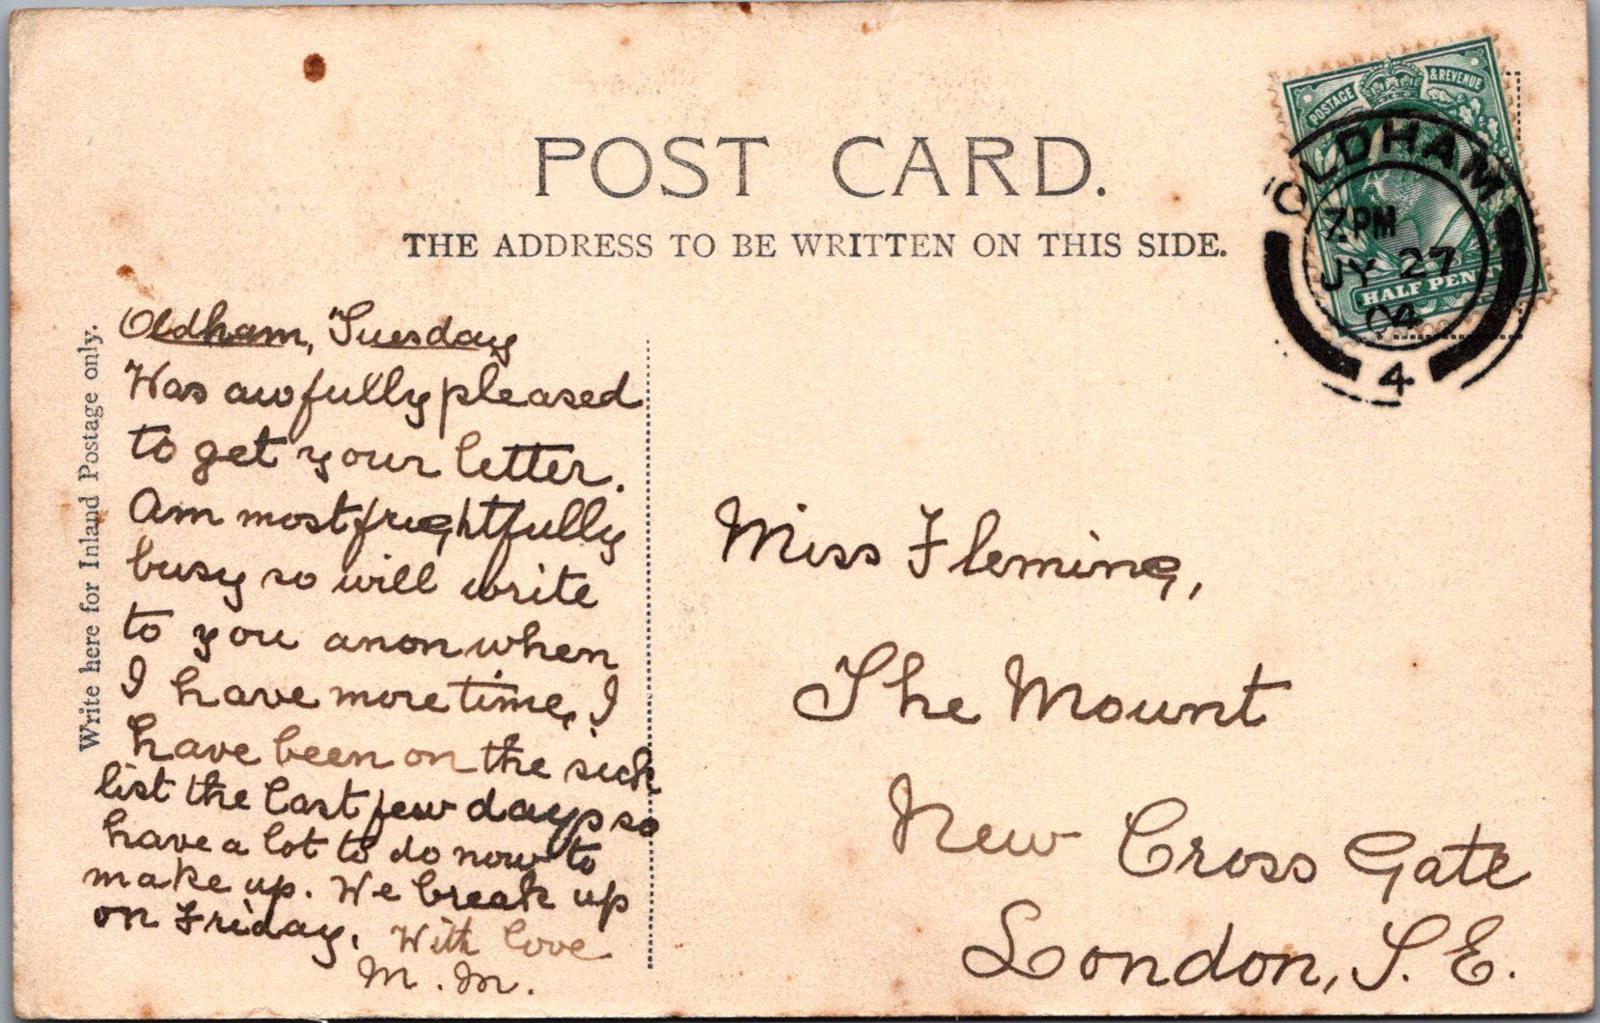 POST CARD.
THE ADDRESS TO BE WRITTEN ON THIS SIDE.
POSTAGE & REVENUE
HALF PENNY
OLDHAM
7.PM
JY 27
04
4
Write here for Inland Postage only.
Oldham, Tuesday
Was awfully pleased
to get your letter.
Am most frightfully
busy so will write
to you anon when
I have more time, I
have been on the sick
list the last few days so
have a lot to do now to
make up. We break up
on Friday. With love
M. M.
Miss Fleming,
The Mount
New Cross Gate
London, S. E.